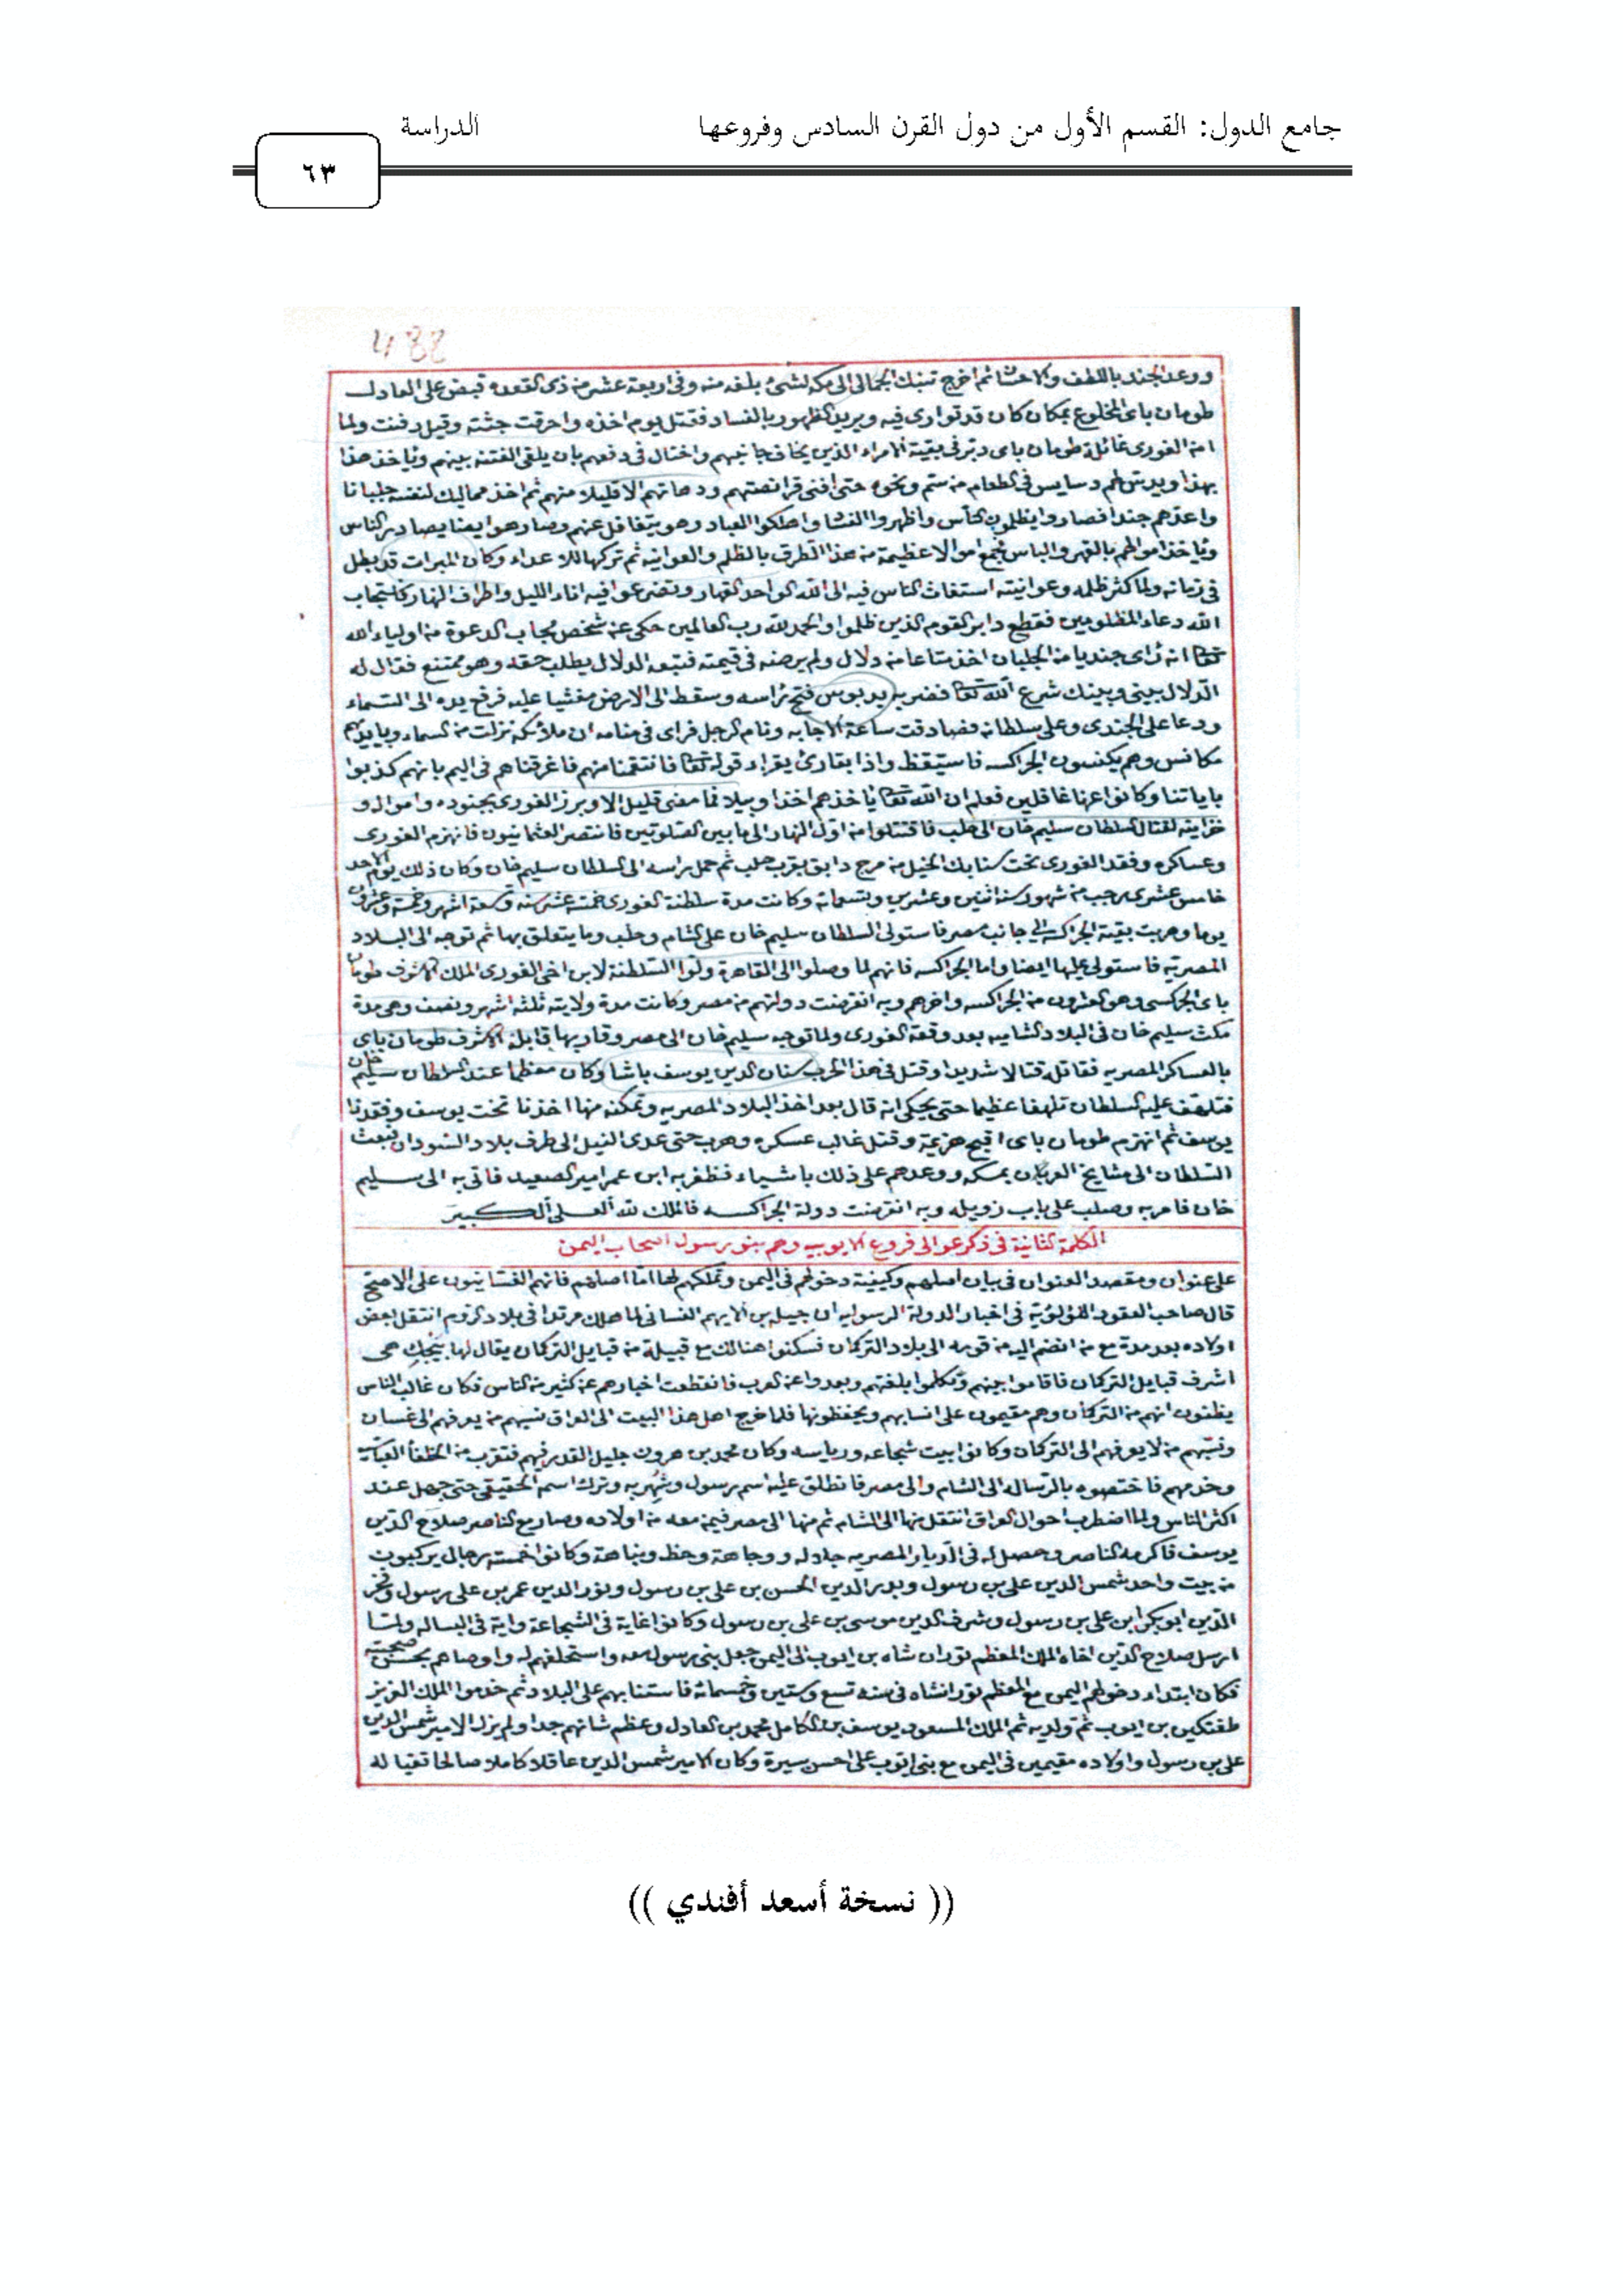 جامع الدول: القسم الأول من دول القرن السادس وفروعها
الدراسة
٦٣
488
ووعد الجند باللطف والاحسان ثم اخرج تنبك الجمالى الى مكه لشئ بلغه منه وفى اربعة عشر من ذى القعده قبض على العادل
طومان باى المخلوع بمكان كان قد توارى فيه ويريد الظهور بالفساد فقتل يوم اخذه واحرقت جثته وقيل دفنت ولما
امن الغورى غائلة طومان باى دبر فى بقية الامراء الذين يخاف جانبهم واحتال فى دفعهم بان يلقى الفتنة بينهم وياخذ هذا
بهذا ويدس لهم دسايس فى الطعام من سم ونحوه حتى افنى قرانصتهم ودهاتهم الا قليلا منهم ثم اخذ مماليك لنفسه جلبانا
واعدهم جندا فصاروا يظلمون الناس واظهروا الفساد واهلكوا العباد وهو يتغافل عنهم وصار هو ايضا يصادر الناس
وياخذ اموالهم بالقهر والباس فجمع اموالا عظيمة من هذا الطرق بالظلم والعوانيه ثم تركها للاعداء وكان الميراث قد بطل
فى زمانه ولما كثر ظلمه وعوانيته استغاث الناس فيه الى الله الواحد القهار وتضرعوا فيه اناء الليل واطراف النهار فاستجاب
الله دعاء المظلومين فقطع دابر القوم الذين ظلموا والحمد لله رب العالمين حكى عن شخص مجاب الدعوة من اولياء الله
تعالى انه رأى جنديا من الجلبان اخذ متاعا من دلال ولم يرضه فى قيمته فتبعه الدلال يطلب حقه وهو ممتنع فقال له
الدلال بينى وبينك شرع الله تعالى فضربه بدبوس فتح رأسه وسقط الى الارض مغشيا عليه فرفع يده الى السماء
ودعا على الجندى وعلى سلطانه فصادفت ساعة الاجابه ونام الرجل فراى فى منامه ان ملائكة نزلت من السماء وبايديهم
مكانس وهم يكنسون الجراكسه فاستيقظ واذا بقارئ يقراء قوله تعالى فانتقمنا منهم فاغرقناهم فى اليم بانهم كذبوا
باياتنا وكانوا عنها غافلين فعلم ان الله تعالى ياخذهم اخذا وبيلا فما مضى قليل الا وبرز الغورى بجنوده وامواله و
خزاينه لقتال السلطان سليم خان الى حلب فاقتتلوا من اول النهار الى ما بين الصلوتين فانتصر العثمانيون فانهزم الغورى
وعساكره وفقد الغورى تحت سنابك الخيل من مرج دابق بقرب حلب ثم حمل براسه الى السلطان سليم خان وكان ذلك يوم الاحد
خامس عشرى رجب من شهور سنة اثنين وعشرين وتسعمائه وكانت مدة سلطنة الغورى خمسة عشر سنه وتسعة اشهر وخمسة وعشرون
يوما وهربت بقية الجراكسه الى جانب مصر فاستولى السلطان سليم خان على الشام وحلب وما يتعلق بها ثم توجه الى البلاد
المصريه فاستولى عليها ايضا واما الجراكسه فانهم لما وصلوا الى القاهرة ولوا السلطنة لابن اخى الغورى الملك الاشرف طومان
باى الجركسى وهو العشرون من الجراكسه واخرهم وبه انقرضت دولتهم من مصر وكانت مدة ولايته ثلثة اشهر ونصف وهى مدة
مكث سليم خان فى البلاد الشاميه بعد وقعة الغورى ولما توجه سليم خان الى مصر وقاربها قابله الاشرف طومان باى
بالعساكر المصريه فقاتله قتالا شديدا وقتل فى هذا الحرب سنان الدين يوسف باشا وكان معظما عند السلطان سليم خان
فتلهف عليه السلطان تلهفا عظيما حتى يحكى انه قال بعد اخذ البلاد المصريه وتمكنه منها اخذنا تخت يوسف وفقدنا
يوسف ثم انهزم طومان باى اقبح هزيمة وقتل غالب عسكره وهرب حتى عدى النيل الى طرف بلاد السودان فبعث
السلطان الى مشايخ العربان بمسكه ووعدهم على ذلك باشياء فظفر به ابن عمر امير الصعيد فاتى به الى سليم
خان فامر به وصلب على باب زويله وبه انقرضت دولة الجراكسه فالملك لله العلى الكبير
الكلمة الثانية فى ذكر عوالى فروع الايوبيه وهم بنو رسول اصحاب اليمن
على عنوان ومقصد العنوان فى بيان اصلهم وكيفية دخولهم فى اليمن وتملكهم لها اما اصلهم فانهم الغسانيون على الاصح
قال صاحب العقود اللؤلؤية فى اخبار الدولة الرسوليه ان جبله بن الايهم الغسانى لما هلك مرتدا فى بلاد الروم انتقل بعض
اولاده بعد مدة مع من انضم اليه من قومه الى بلاد التركمان فسكنوا هنالك مع قبيلة من قبايل التركمان يقال لها بيجك هى
اشرف قبايل التركمان فاقاموا بينهم وتكلموا بلغتهم وبعدوا عن العرب فانقطعت اخبارهم عن كثير من الناس فكان غالب الناس
يظنون انهم من التركمان وهم مقيمون على انسابهم ويحفظونها فلما خرج اهل هذا البيت الى العراق نسبهم من يعرفهم الى غسان
ونسبهم من لا يعرفهم الى التركمان وكانوا بيت شجاعه ورياسه وكان محمد بن هرون جليل القدر فيهم فتقرب من الخلفأ العباسيه
وخدمهم فاختصوه بالرساله الى الشام والى مصر فانطلق عليه اسم رسول وشهر به وترك اسم الحقيقى حتى جهل عند
اكثر الناس ولما اضطرب احوال العراق انتقل منها الى الشام ثم منها الى مصر فيمن معه من اولاده وصار مع الناصر صلاح الدين
يوسف فاكرمه الناصر وحصل له فى الديار المصريه جلاله ووجاهة وحظ ونباهة وكانوا خمسة رجال يركبون
من بيت واحد شمس الدين على بن رسول وبدر الدين الحسن بن على بن رسول ونور الدين عمر بن على رسول وفخر
الدين ابو بكر ابن على بن رسول وشرف الدين موسى بن على بن رسول وكانوا غاية فى الشجاعة واية فى البساله ولما
ارسل صلاح الدين اخاه الملك المعظم توران شاه بن ايوب الى اليمن جعل بنى رسول معه واستحلفهم له واوصاهم بحسن صحبته
فكان ابتداء دخولهم اليمن مع المعظم تورانشاه فى سنة تسع وستين وخمسمائة فاستنابهم على البلاد ثم خدموا الملك العزيز
طغتكين بن ايوب ثم ولديه ثم الملك المسعود يوسف بن الكامل محمد بن العادل وعظم شانهم جدا ولم يزل الامير شمس الدين
على بن رسول واولاده مقيمين فى اليمن مع بنى ايوب على احسن سيرة وكان الامير شمس الدين عاقلا كاملا صالحا تقيا له
(( نسخة أسعد أفندي ))